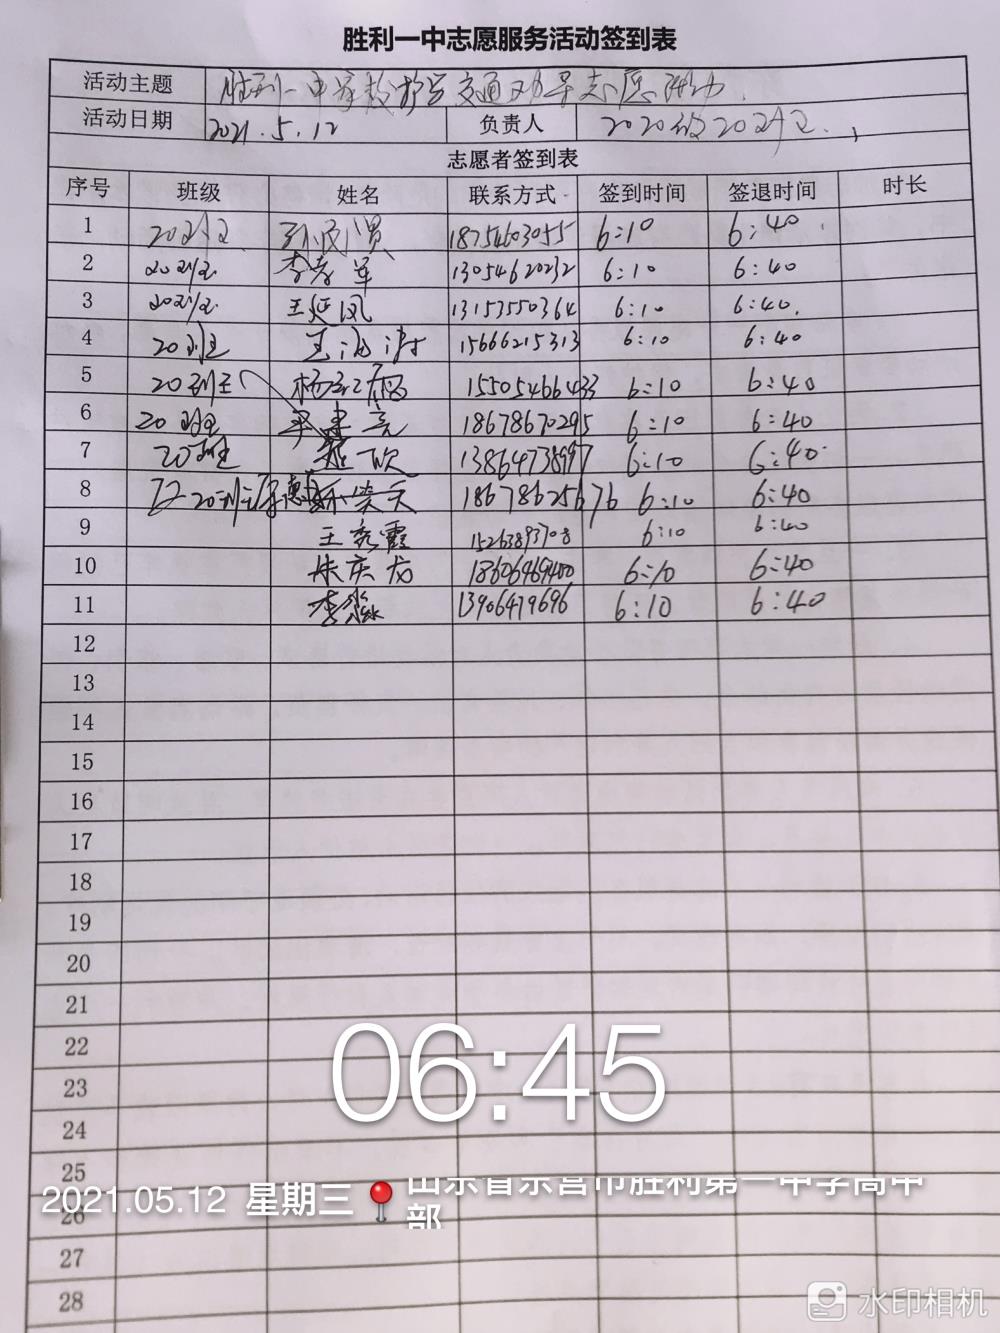 胜利一中志愿服务活动签到表
活动主题 胜利一中 交通劝导志愿活动
活动日期 2021.5.12 负责人 2020级20班
志愿者签到表
序号 班级 姓名 联系方式 签到时间 签退时间 时长
1 20班 18754603055 6:10 6:40
2 20班 李孝军 13054620232 6:10 6:40
3 20班 王延凤 13153550364 6:10 6:40
4 20班 15666215313 6:10 6:40
5 20班 15505466433 6:10 6:40
6 20班 18678670295 6:10 6:40
7 20班 13864738997 6:10 6:40
8 20班 18678625676 6:10 6:40
9 王秀霞 15263893708 6:10 6:40
10 朱庆龙 18606469400 6:10 6:40
11 李 13906479696 6:10 6:40
12
13
14
15
16
17
18
19
20
21
22
06:45
23
24
25
2021.05.12 星期三 山东省东营市胜利第一中学高中部
26
27
28
水印相机